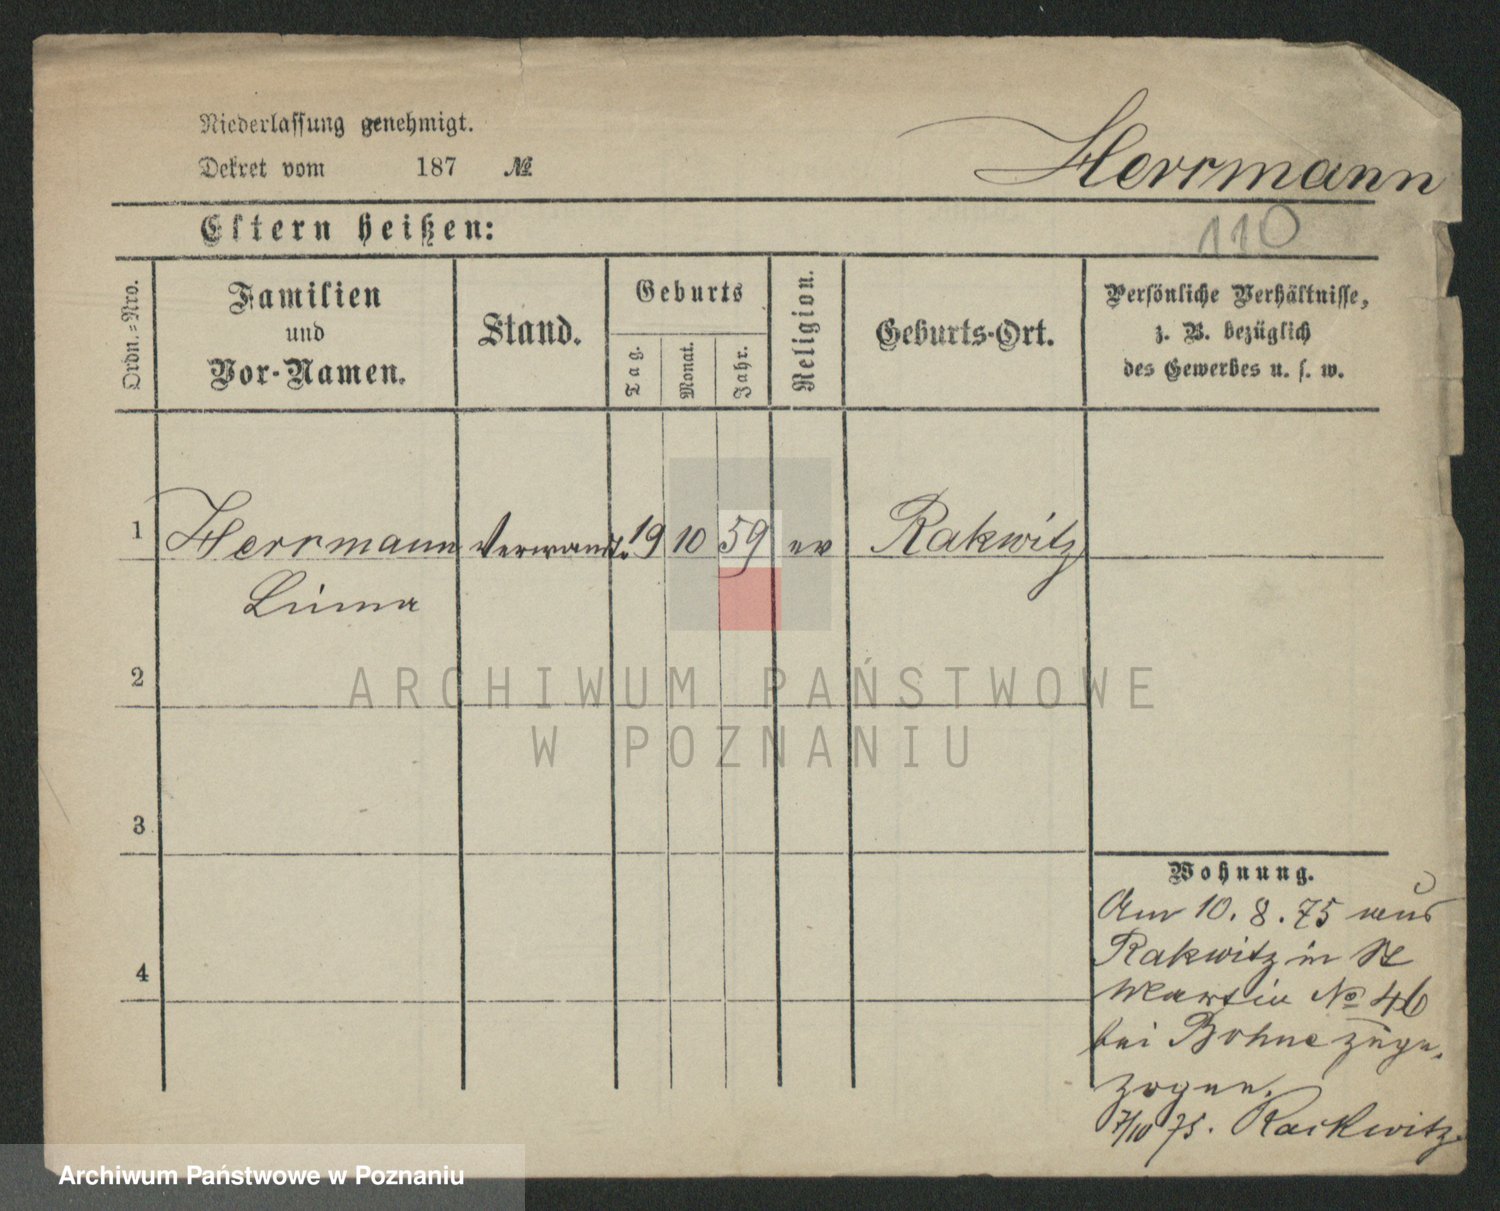 Niederlassung genehmigt.
Dekret vom 187 №
Herrmann
110
Eltern heißen:
Ordn.=Nro.
Familien
und
Vor-Namen.
Stand.
Geburts
Tag.
Monat.
Jahr.
Religion.
Geburts-Ort.
Persönliche Verhältnisse,
z. B. bezüglich
des Gewerbes u. s. w.
1 Herrmann Verwandt. 19 10 59 ev Rakwitz
2
3
4
ARCHIWUM PAŃSTWOWE
W POZNANIU
Wohnung.
Am 10. 8. 75 aus
Rakwitz in St
Martin No 46
bei Bohne zuge-
zogen.
7/10 75. Rackwitz
Archiwum Państwowe w Poznaniu